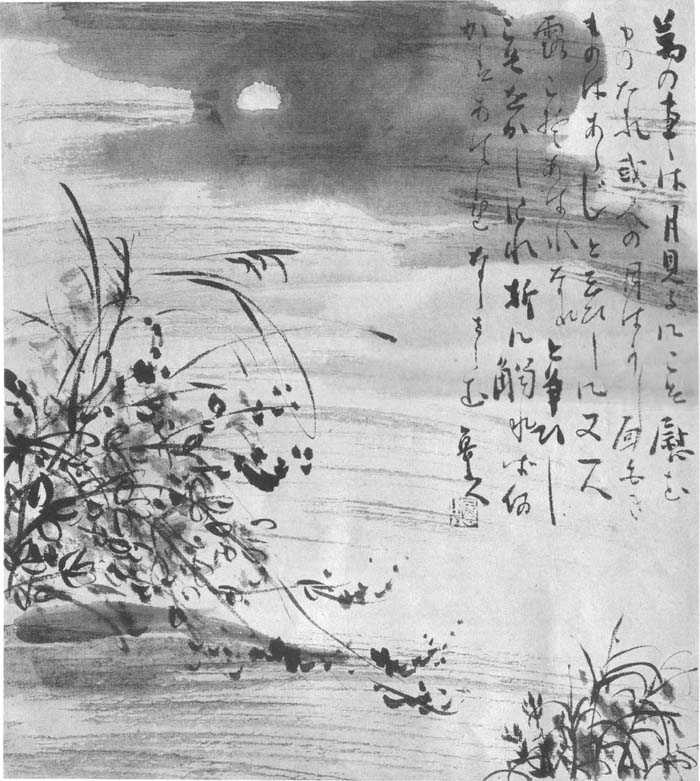 萬の事は月見るにこそ慰む
ものなれ或人の月はかり面白き
ものはあらじと云ひしに又一人
露こそあはれなれと争ひし
こそをかしけれ折に觸れは何
かはあはれならさらむ